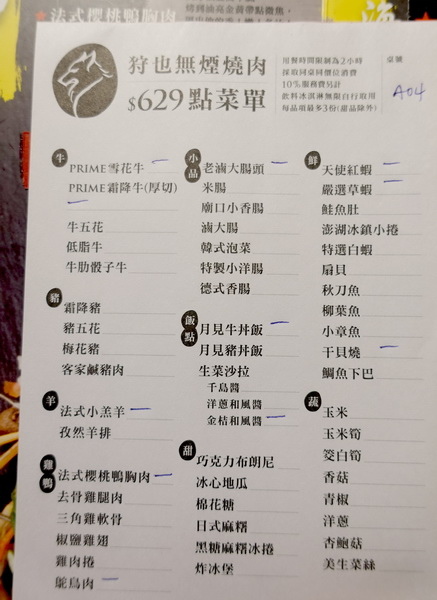 法式櫻桃鴨胸肉
狩也無煙燒肉
$629點菜單
用餐時間限制為2小時
採取同桌同價位消費
10%服務費另計
飲料冰淇淋無限自行取用
每品項最多3份(甜品除外)
桌號
A04
牛
PRIME雪花牛
PRIME霜降牛(厚切)
牛五花
低脂牛
牛肋骰子牛
豬
霜降豬
豬五花
梅花豬
客家鹹豬肉
羊
法式小羔羊
孜然羊排
雞鴨
法式櫻桃鴨胸肉
去骨雞腿肉
三角雞軟骨
椒鹽雞翅
雞肉捲
鴕鳥肉
小品
老滷大腸頭
米腸
廟口小香腸
滷大腸
韓式泡菜
特製小洋腸
德式香腸
飯點
月見牛丼飯
月見豬丼飯
生菜沙拉
千島醬
洋蔥和風醬
金桔和風醬
甜
巧克力布朗尼
冰心地瓜
棉花糖
日式麻糬
黑糖麻糬冰捲
炸冰堡
鮮
天使紅蝦
嚴選草蝦
鮭魚肚
澎湖冰鎮小捲
特選白蝦
扇貝
秋刀魚
柳葉魚
小章魚
干貝燒
鯛魚下巴
蔬
玉米
玉米筍
筊白筍
香菇
青椒
洋蔥
杏鮑菇
美生菜絲